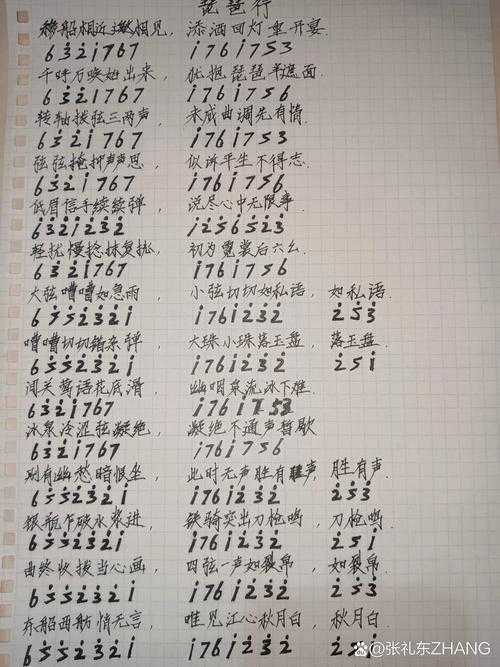 琵琶行
移船相近邀相见，添酒回灯重开宴.
6 3̇ 2̇ 1̇ 7 6 7 1̇ 7 6 1̇ 7 5 3
千呼万唤始出来，犹抱琵琶半遮面.
6 3̇ 2̇ 1̇ 7 6 7 1̇ 7 6 1̇ 7 5 6
转轴拨弦三两声，未成曲调先有情.
6 3̇ 2̇ 1̇ 7 6 7 1̇ 7 6 1̇ 7 5 3
弦弦掩抑声声思，似诉平生不得志.
6 3̇ 2̇ 1̇ 7 6 7 1̇ 7 6 1̇ 7 5 6
低眉信手续续弹，说尽心中无限事.
6 3̇ 2̇ 1̇ 2̇ 3̇ 2̇ 1̇ 2̇ 5 6 5̇ 2̇ 3̇
轻拢慢捻抹复挑，初为霓裳后六幺.
6 3̇ 2̇ 1̇ 7 6 7 1̇ 7 6 1̇ 7 5 6
大弦嘈嘈如急雨，小弦切切如私语，如私语.
6 5̇ 5̇ 2̇ 3̇ 2̇ 1̇ 1̇ 7 6 1̇ 2̇ 3̇ 2̇ 2̇ 5̇ 3̇
嘈嘈切切错杂弹，大珠小珠落玉盘，落玉盘.
6 5̇ 5̇ 2̇ 3̇ 2̇ 1̇ 1̇ 7 6 1̇ 2̇ 3̇ 2̇ 2̇ 5 1̇
间关莺语花底滑，幽咽泉流冰下难.
6 3̇ 2̇ 1̇ 7 6 7 1̇ 7 6 1̇ 7 5 3
冰泉冷涩弦凝绝，凝绝不通声暂歇
6 3̇ 2̇ 1̇ 7 6 7 1̇ 7 6 1̇ 7 5 6
别有幽愁暗恨生，此时无声胜有声，胜有声.
6 5̇ 5̇ 2̇ 3̇ 2̇ 1̇ 1̇ 7 6 1̇ 2̇ 3̇ 2̇ 2̇ 5̇ 3̇
银瓶乍破水浆迸，铁骑突出刀枪鸣，刀枪鸣.
6 5̇ 5̇ 2̇ 3̇ 2̇ 1̇ 1̇ 7 6 1̇ 2̇ 3̇ 2̇ 2̇ 5 1̇
曲终收拨当心画，四弦一声如裂帛，如裂帛.
6 5̇ 5̇ 2̇ 3̇ 2̇ 1̇ 1̇ 7 6 1̇ 2̇ 3̇ 2̇ 2̇ 5̇ 3̇
东船西舫悄无言，唯见江心秋月白，秋月白
6 5̇ 5̇ 2̇ 3̇ 2̇ 1̇ 1̇ 7 6 1̇ 2̇ 3̇ 2̇ 2̇ 5 1̇
@张礼东ZHANG